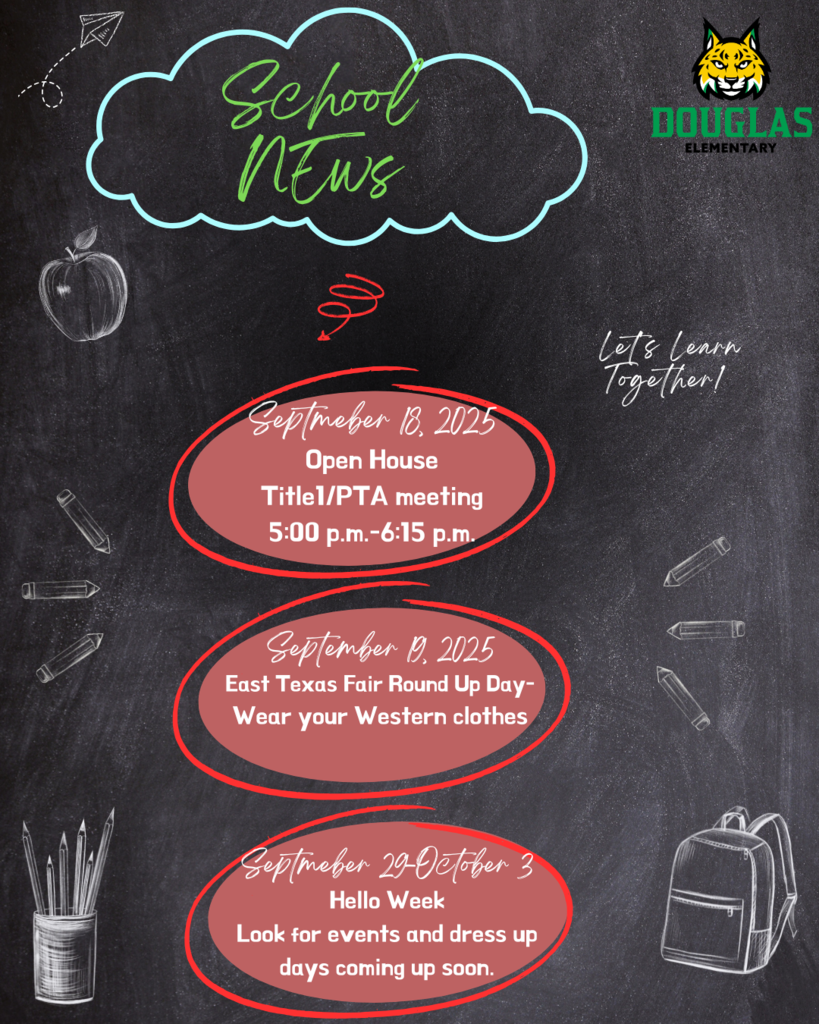 School
NEws
DOUGLAS
ELEMENTARY
Let's Learn
Together!
Septmeber 18, 2025
Open House
Title1/PTA meeting
5:00 p.m.-6:15 p.m.
September 19, 2025
East Texas Fair Round Up Day-
Wear your Western clothes
Septmeber 29-October 3
Hello Week
Look for events and dress up
days coming up soon.